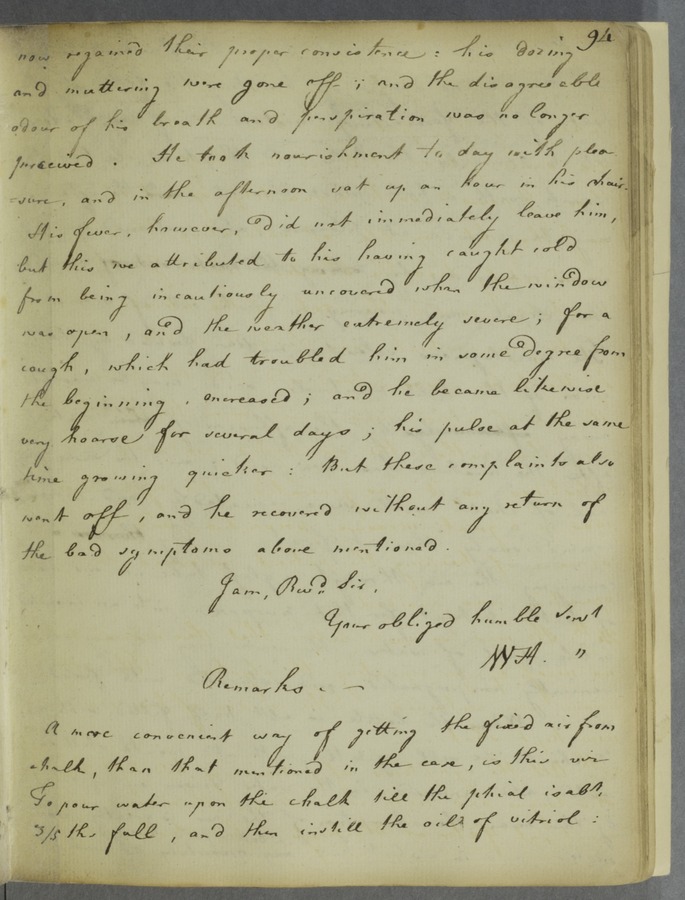 94
now regained their proper consistence: his dozing
and muttering were gone off; and the disagreeable
odour of his breath and perspiration was no longer
perceived. He took nourishment to day with plea
-sure, and in the afternoon sat up an hour in his chair.
His fever, however, did not immediately leave him,
but this we attributed to his having caught cold
from being incautiously uncovered when the window
was open, and the weather extremely severe; for a
cough, which had troubled him in some degree from
the beginning, encreased; and he became likewise
very hoarse for several days; his pulse at the same
time growing quicker: But these complaints also
went off, and he recovered without any return of
the bad symptoms above mentioned.
I am, Revd. Sir,
Your obliged humble Servt
WH. "
Remarks. —
A more convenient way of getting the fixed air from
chalk, than that mentioned in the case, is this viz
To pour water upon the chalk till the phial is abt.
3/5ths full, and then instill the oil of vitriol: